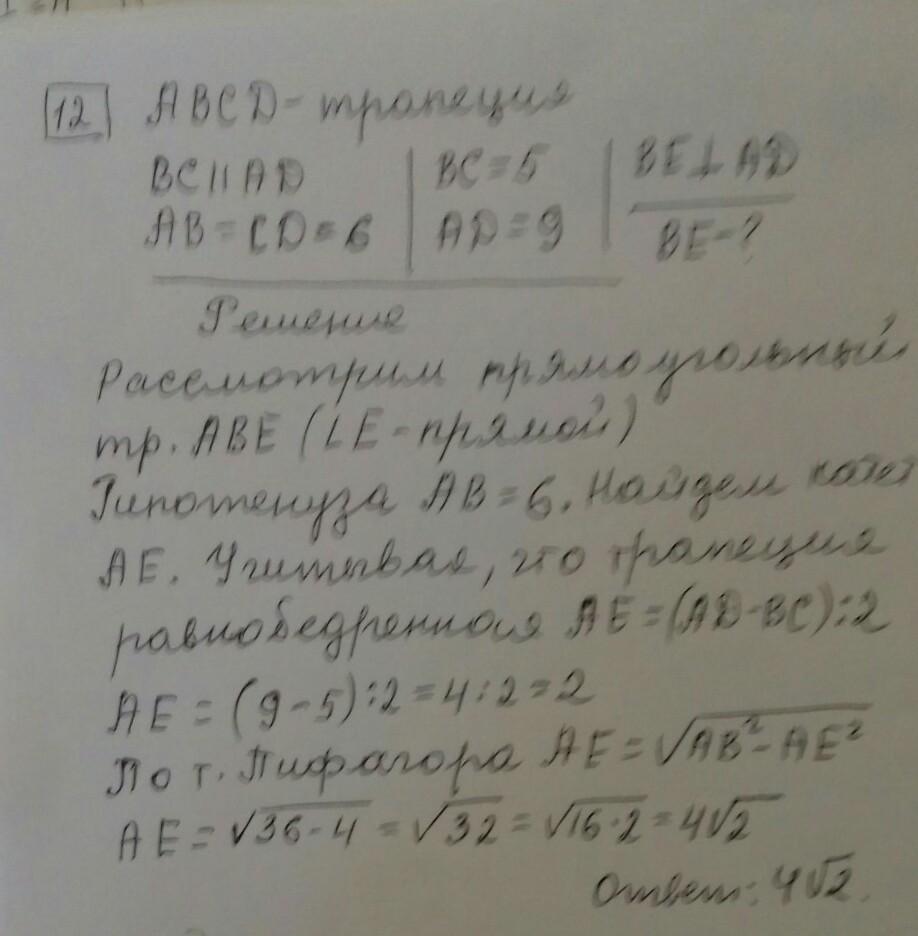 12 ABCD - трапеция
BC || AD | BC = 5 | BE ⊥ AD
AB = CD = 6 | AD = 9 | BE - ?
Решение
Рассмотрим прямоугольный
тр. ABE (∠E - прямой)
Гипотенуза AB = 6. Найдем катет
AE. Учитывая, что трапеция
равнобедренная AE = (AD - BC) : 2
AE = (9 - 5) : 2 = 4 : 2 = 2
По т. Пифагора AE = √(AB² - AE²)
AE = √(36 - 4) = √32 = √(16 · 2) = 4√2
Ответ: 4√2.